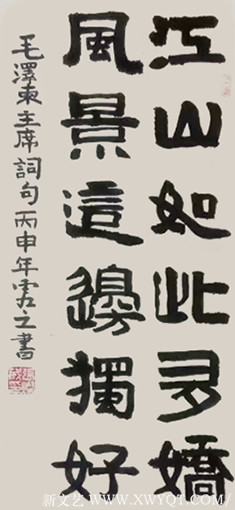 江山如此多嬌
風景這邊獨好
毛澤東主席詞句丙申年雲之書
新文艺 www.XWYQT.COM